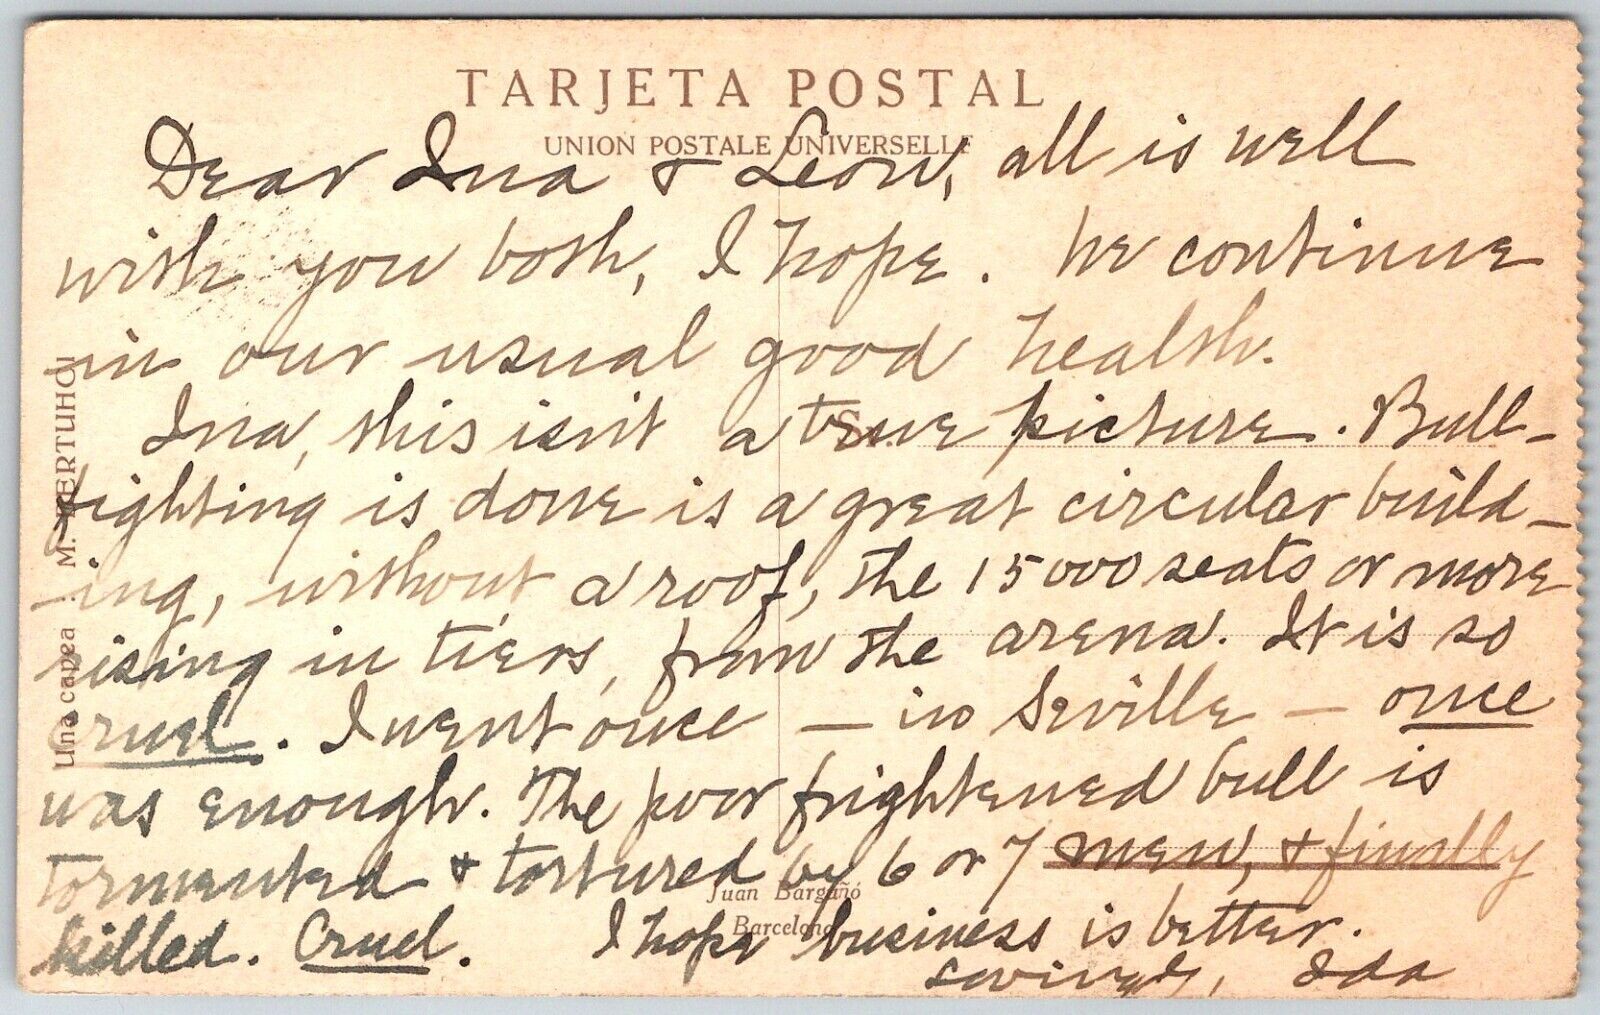 TARJETA POSTAL
UNION POSTALE UNIVERSELLE
Dear Ina & Leon, all is well
with you both, I hope. We continue
in our usual good health.
Ina, this isn't a true picture. Bull-
fighting is done is a great circular build-
-ing, without a roof, the 15000 seats or more
rising in tiers, from the arena. It is so
cruel. I went once — in Seville — once
was enough. The poor frightened bull is
tormented & tortured by 6 or 7 men, & finally
killed. Cruel. I hope business is better.
Lovingly, Ida
Una capea : M. BERTUHOI
Sr.
Juan Bargañó
Barcelona